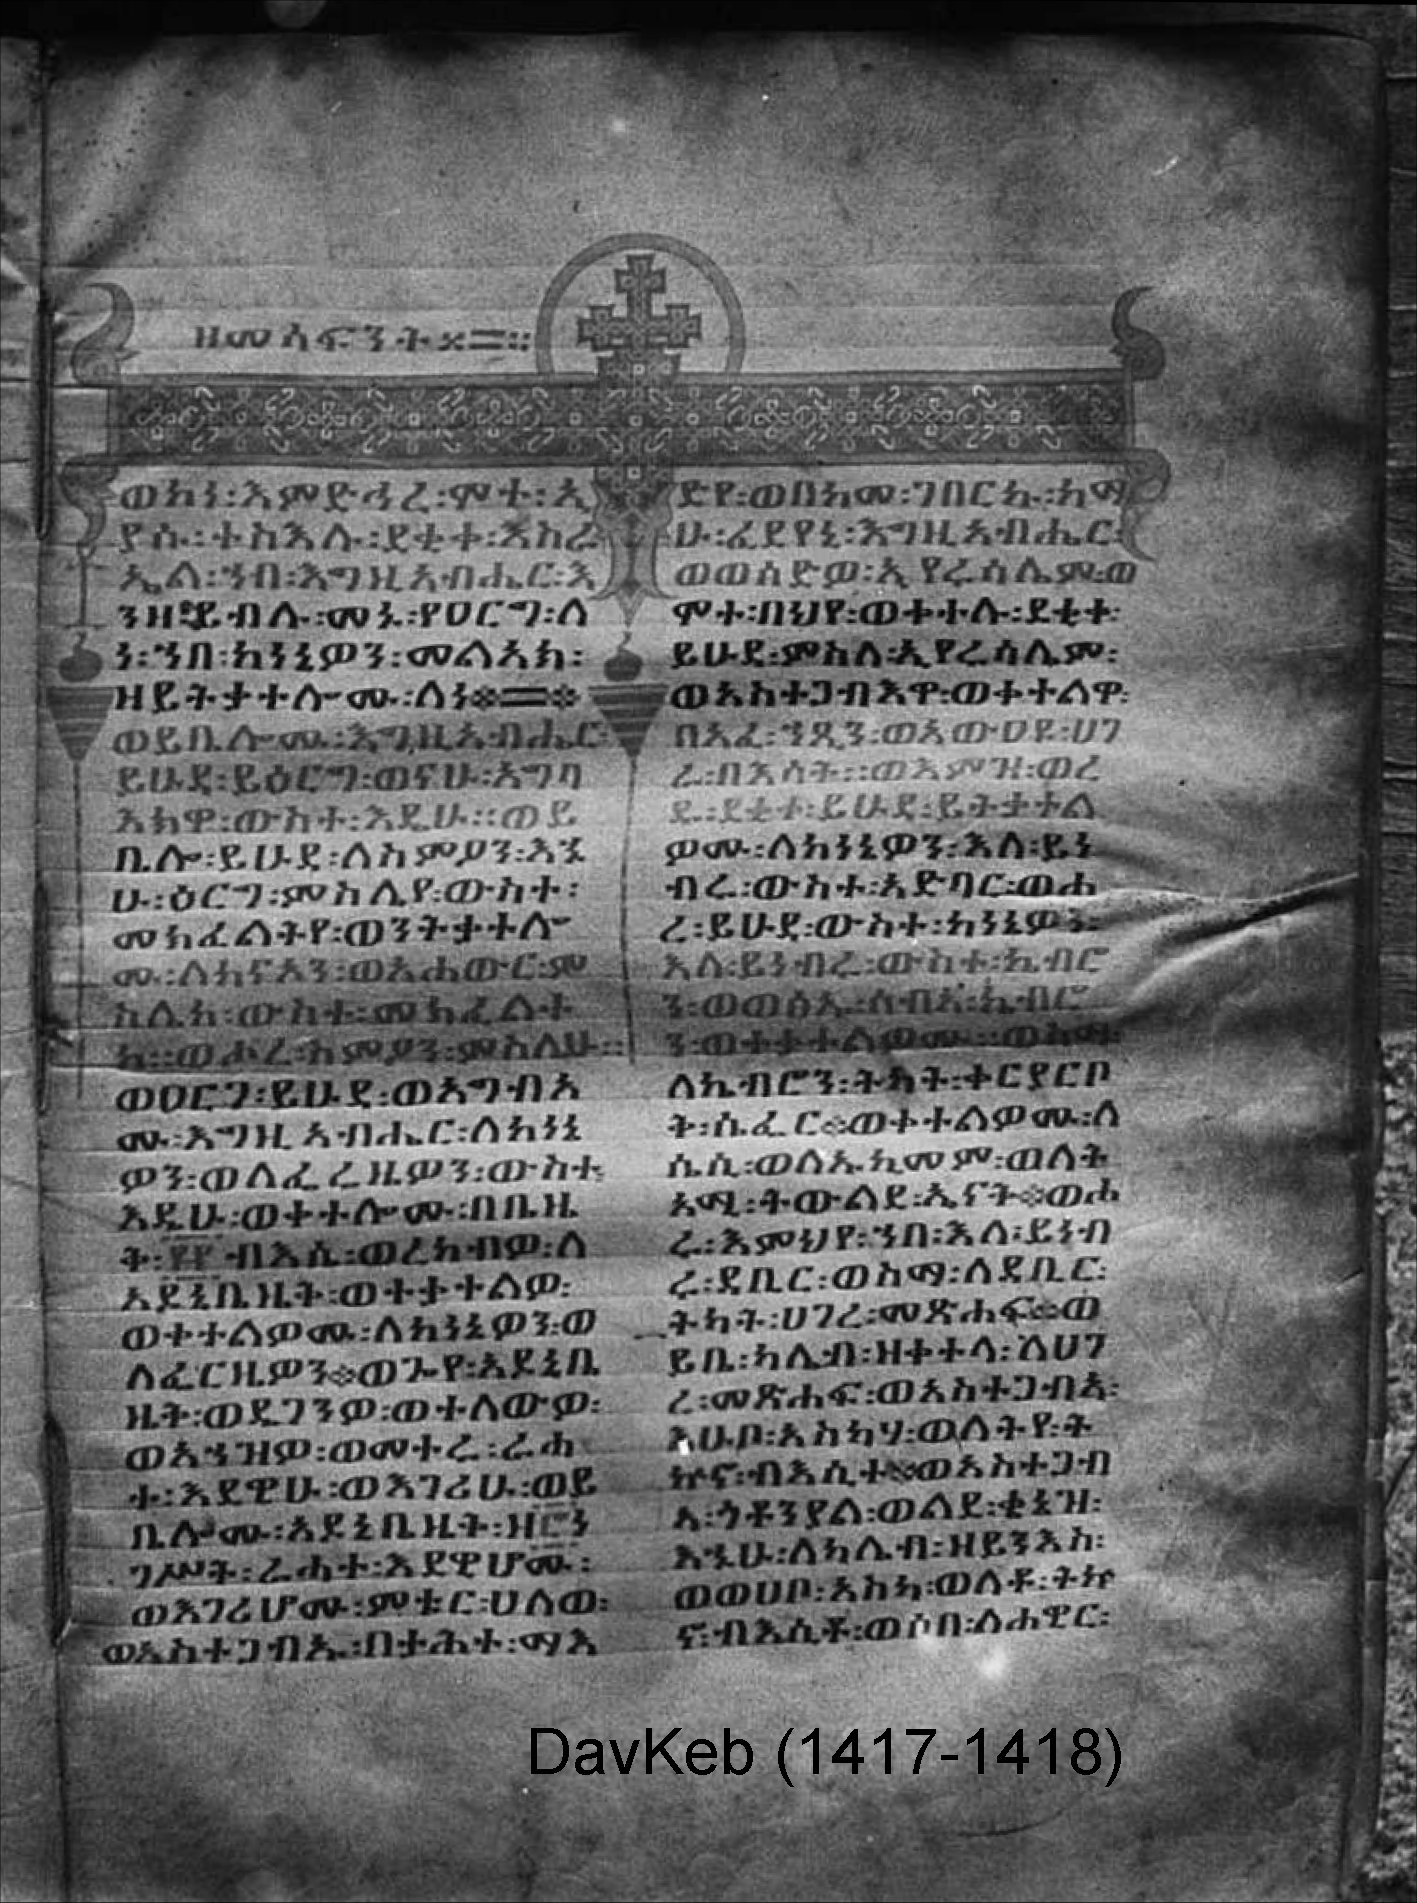 ዘመሳፍንት፠=።
ወከነ፡እምድኅረ፡ሞተ፡ኢ
ያሱ፡ተስእሉ፡ደቂቀ፡እስራ
ኤል፡ኀበ፡እግዚአብሔር፡እ
ንዘ፡ይብሉ፡መኑ፡የዐርግ፡ለ
ነ፡ኀበ፡ከነኔዎን፡መልአክ፡
ዘይትቃተሎሙ፡ለነ፨=፨
ወይቤሎሙ፡እግዚአብሔር፡
ይሁዳ፡ይዕርግ፡ወናሁ፡አግባ
እክዋ፡ውስተ፡እዴሁ።ወይ
ቤሎ፡ይሁዳ፡ለስምዖን፡እኁ
ሁ፡ዕርግ፡ምስሌየ፡ውስተ፡
መክፈልትየ፡ወንትቃተሎ
ሙ፡ለከናአን፡ወአሐውር፡ም
ስሌከ፡ውስተ፡መክፈልተ
ከ።ወሖረ፡ስምዖን፡ምስሌሁ።
ወዐርገ፡ይሁዳ፡ወአግብአ
ሙ፡እግዚአብሔር፡ለከነኔ
ዎን፡ወለፈረዜዎን፡ውስተ፡
እዴሁ፡ወቀተሎሙ፡በቤዜ
ት፡፼፡ብእሴ፡ወረከብዎ፡ለ
አዶኒቤዜት፡ወተቃተልዎ፡
ወቀተልዎሙ፡ለከነኔዎን፡ወ
ለፈርዜዎን፨ወጐየ፡አዶኒቤ
ዜት፡ወዴገንዎ፡ወተለውዎ፡
ወአኀዝዎ፡ወመተሩ፡ራሐ
ተ፡እደዊሁ፡ወእገሪሁ፡ወይ
ቤሎሙ፡አዶኒቤዜት፡ዘ፸ነ
ገሥት፡ራሐተ፡እደዊሆሙ፡
ወእገሪሆሙ፡ምቱር፡ሀለወ፡
ወአስተጋብኡ፡በታሕተ፡ማእ
ድየ፡ወበከመ፡ገበርኩ፡ከማ
ሁ፡ፈደየኒ፡እግዚአብሔር፡
ወወሰድዎ፡ኢየሩሳሌም፡ወ
ሞተ፡በህየ፡ወቀተሉ፡ደቂቀ፡
ይሁዳ፡ምስለ፡ኢየሩሳሌም፡
ወአስተጋብእዋ፡ወቀተልዋ፡
በአፈ፡ኀጺን፡ወአውዐዩ፡ሀገ
ራ፡በእሳት።ወእምዝ፡ወረ
ዱ፡ደቂቀ፡ይሁዳ፡ይትቃተል
ዎሙ፡ለከነኔዎን፡እለ፡ይነ
ብሩ፡ውስተ፡አድባር፡ወሐ
ረ፡ይሁዳ፡ውስተ፡ከነኔዎን፡
እለ፡ይነብሩ፡ውስተ፡ኬብሮ
ን፡ወወፅኡ፡ሰብአ፡ኬብሮ
ን፡ወተቃተልዎሙ።ወስማ፡
ለኬብሮን፡ትካት፡ቀርያርቦ
ት፡ሴፈር፨ወቀተልዎሙ፡ለ
ሴሲ፡ወለአኪመም፡ወለት
አሚ፡ትውልደ፡ኤናት፨ወሐ
ሩ፡እምህየ፡ኀበ፡እለ፡ይነብ
ሩ፡ዳቤር፡ወስማ፡ለዳቤር፡
ትካት፡ሀገረ፡መጽሐፍ፨ወ
ይቤ፡ካሌብ፡ዘቀተላ፡ለሀገ
ረ፡መጽሐፍ፡ወአስተጋብአ፡
እሁቦ፡አስካሃ፡ወለትየ፡ት
ኵኖ፡ብእሲተ፨ወአስተጋብ
አ፡ጎቶንያል፡ወልደ፡ቄኔዝ፡
እኁሁ፡ለካሌብ፡ዘይንእስ፡
ወወሀቦ፡አስካ፡ወለቶ፡ትኵ
ኖ፡ብእሲቶ፡ወሶበ፡ለሐዊር፡
DavKeb (1417-1418)